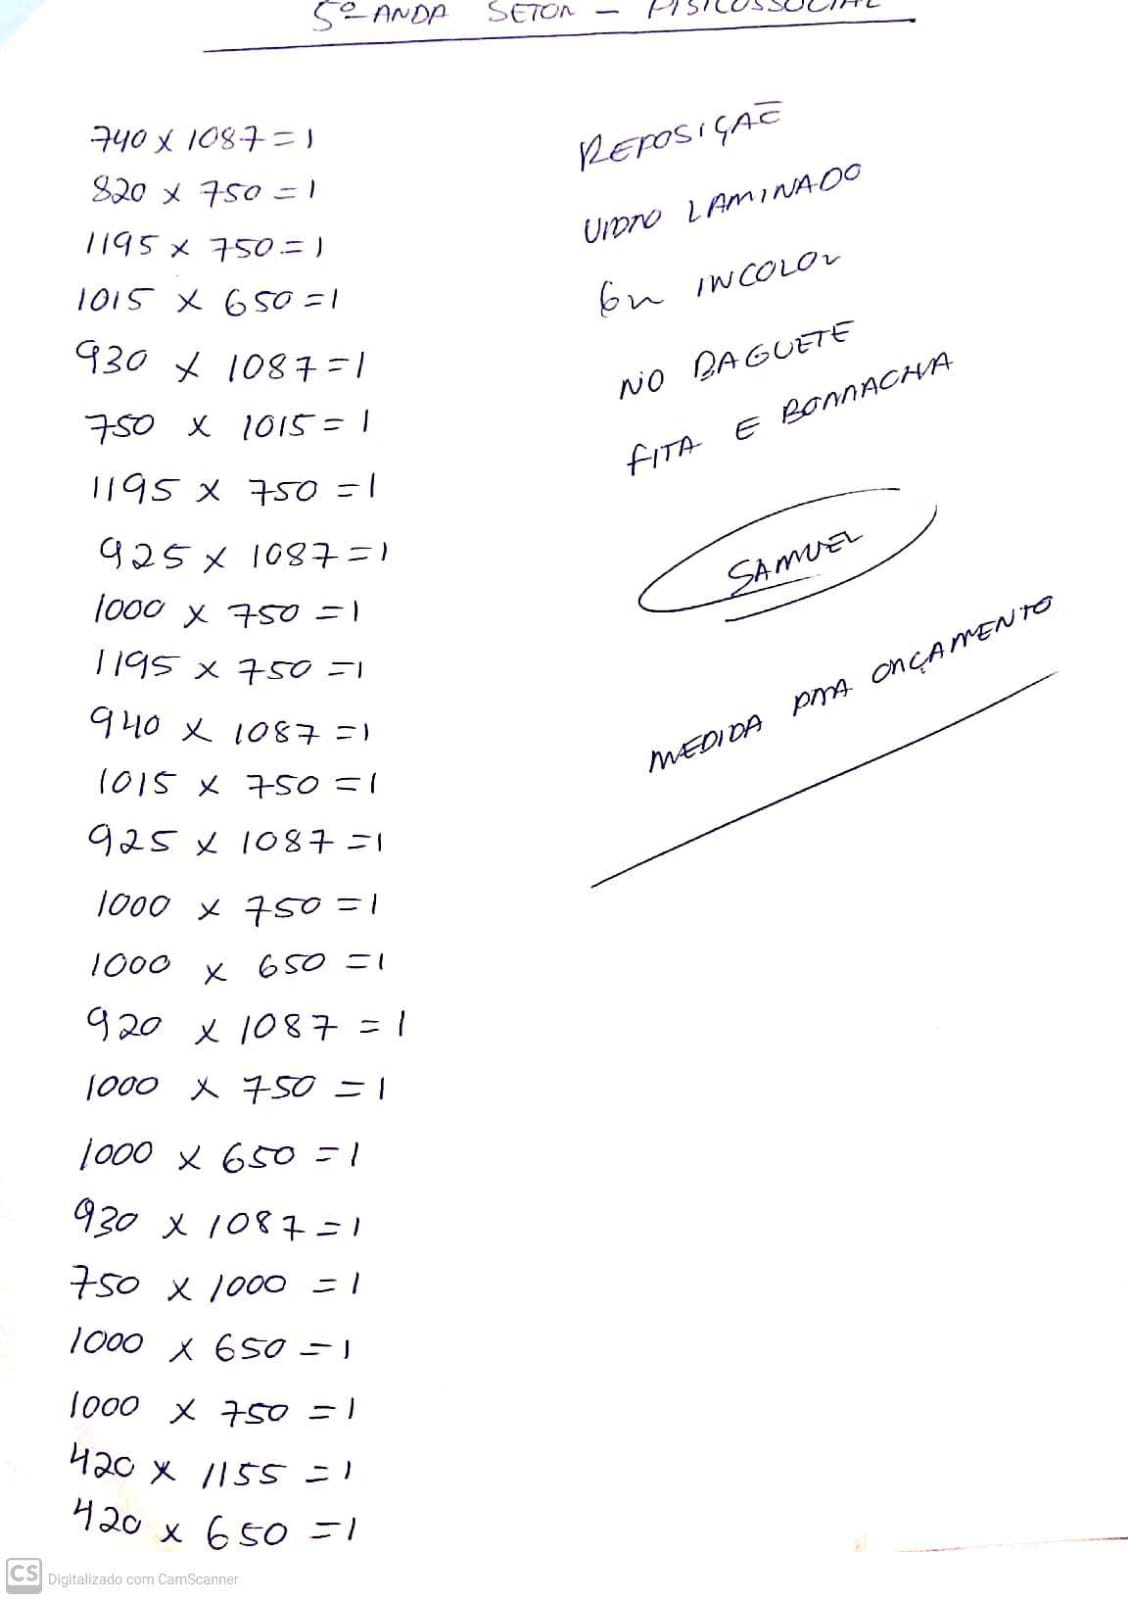 5º ANDA SETOR - PISICOSSOCIAL
740 x 1087 = 1
820 x 750 = 1
1195 x 750 = 1
1015 x 650 = 1
930 x 1087 = 1
750 x 1015 = 1
1195 x 750 = 1
925 x 1087 = 1
1000 x 750 = 1
1195 x 750 = 1
940 x 1087 = 1
1015 x 750 = 1
925 x 1087 = 1
1000 x 750 = 1
1000 x 650 = 1
920 x 1087 = 1
1000 x 750 = 1
1000 x 650 = 1
930 x 1087 = 1
750 x 1000 = 1
1000 x 650 = 1
1000 x 750 = 1
420 x 1155 = 1
420 x 650 = 1
REPOSIÇAE
VIDRO LAMINADO
6m INCOLOR
NO BAGUETE
FITA E BORRACHA
SAMUEL
MEDIDA PRA ORÇAMENTO
CS Digitalizado com CamScanner